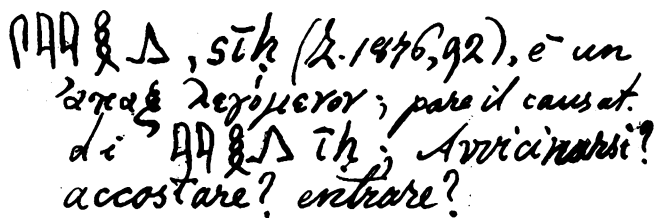 𓋴𓇋𓇋𓎛𓂻, sīḥ (Z. 1876, 92), è un
ἅπαξ λεγόμενον; pare il causat.
di 𓇋𓇋𓎛𓂻 īḥ; Avvicinarsi?
accostare? entrare?